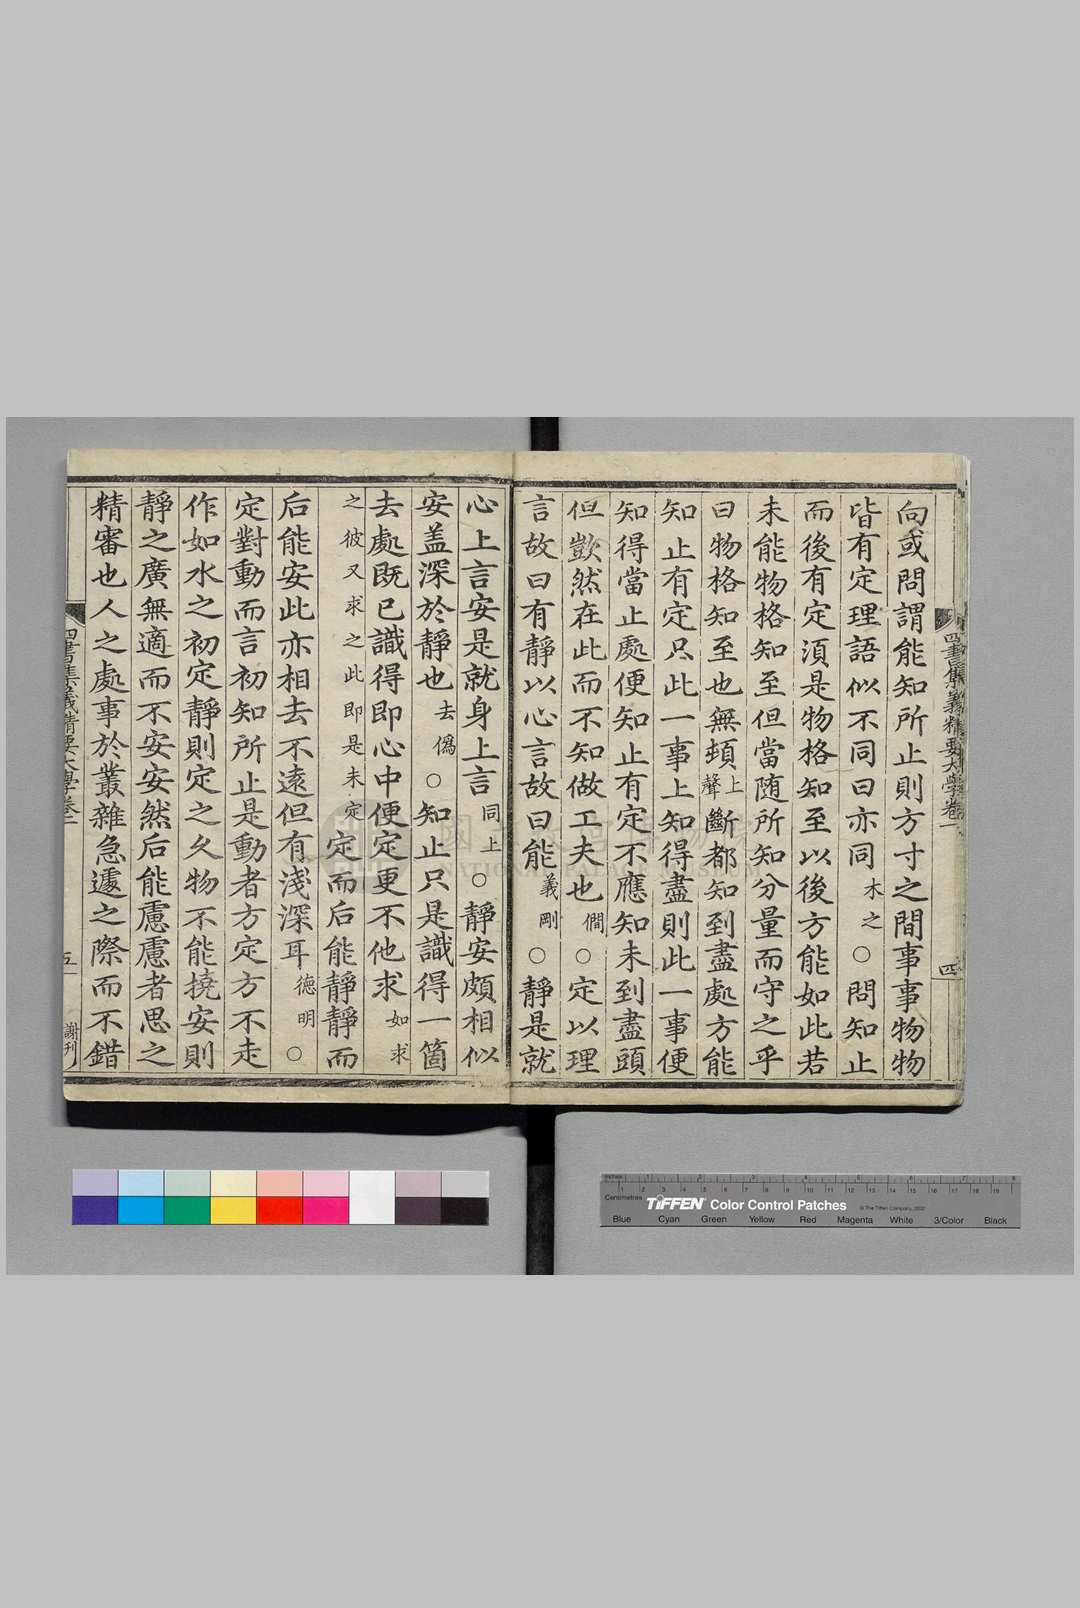 四書集義精要大學卷一
四
向或問謂能知所止則方寸之間事事物物
皆有定理語似不同曰亦同木之○問知止
而後有定須是物格知至以後方能如此若
未能物格知至但當隨所知分量而守之乎
曰物格知至也無頓上聲斷都知到盡處方能
知止有定只此一事上知得盡則此一事便
知得當止處便知止有定不應知未到盡頭
但歕然在此而不知做工夫也僩○定以理
言故曰有靜以心言故曰能義剛○靜是就
心上言安是就身上言同上○靜安頗相似
安盖深於靜也去僞○知止只是識得一箇
去處既已識得即心中便定更不他求如求
之彼又求之此即是未定定而后能靜靜而
后能安此亦相去不遠但有淺深耳德明○
定對動而言初知所止是動者方定方不走
作如水之初定靜則定之久物不能撓安則
靜之廣無適而不安安然后能慮慮者思之
精審也人之處事於叢雜急遽之際而不錯
四書集義精要大學卷一
五
謝刊
NATIONAL PALACE MUSEUM
Inches
Centimetres
TIFFEN Color Control Patches
© The Tiffen Company, 2007
Blue Cyan Green Yellow Red Magenta White 3/Color Black